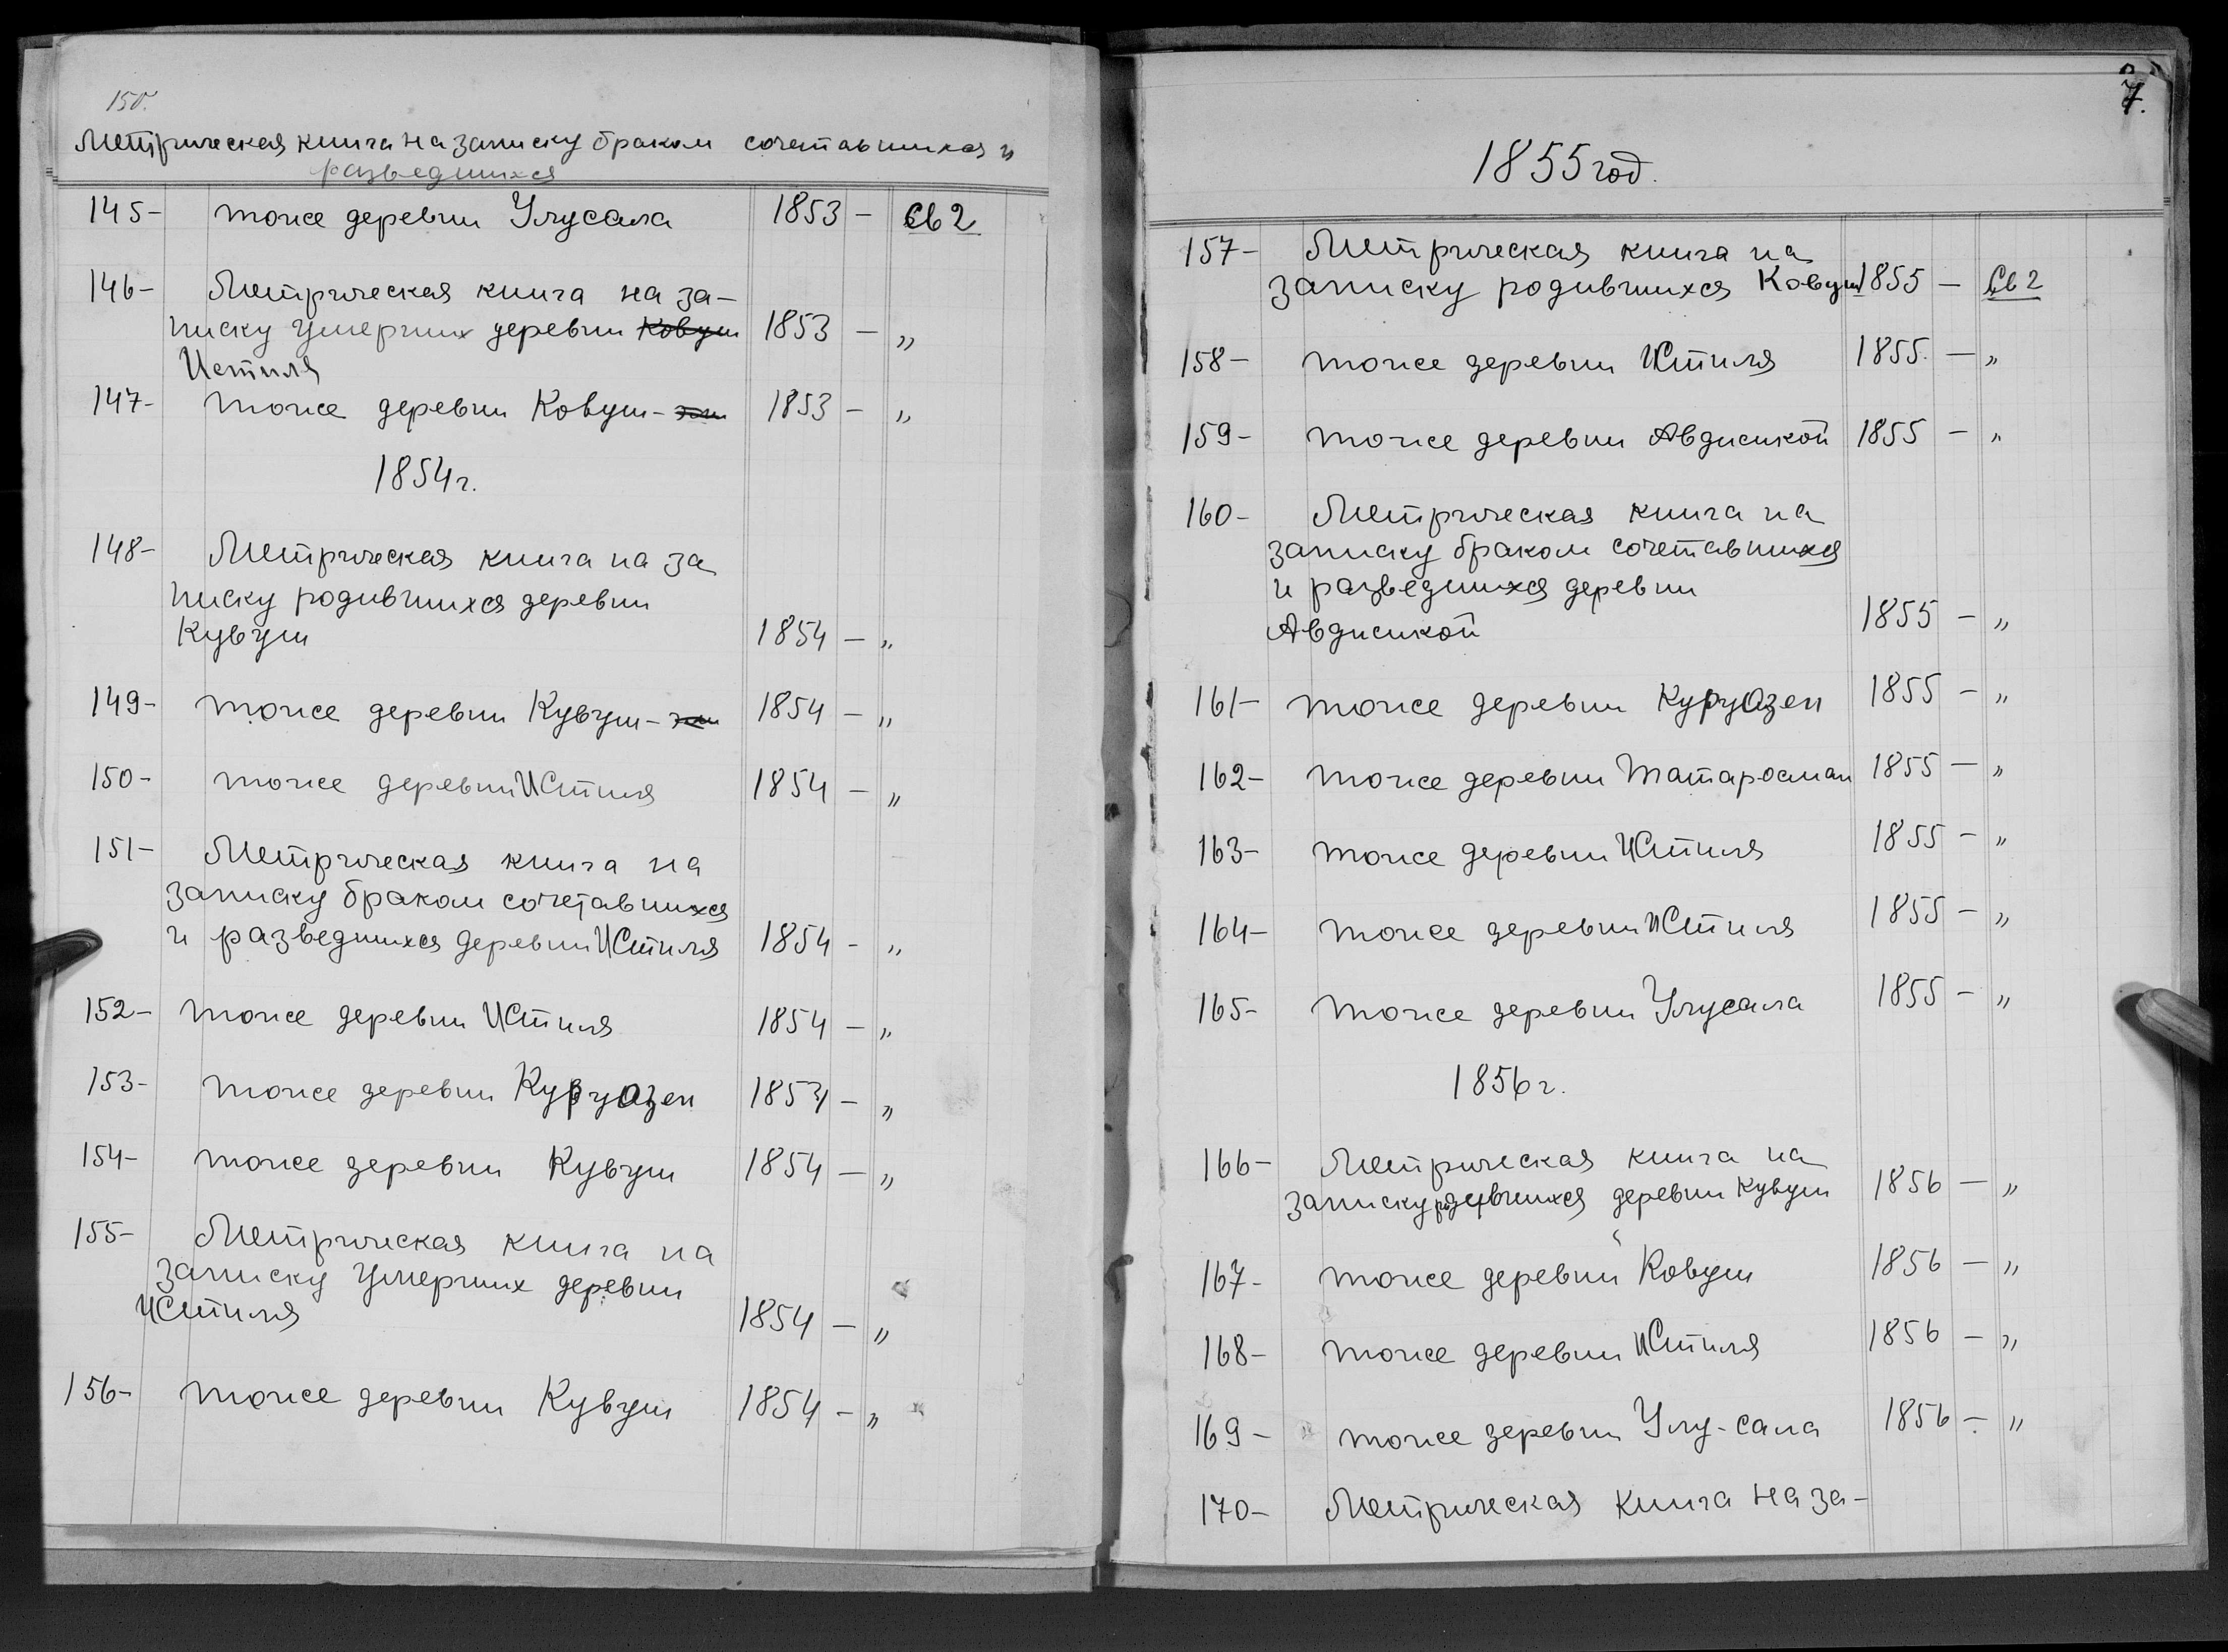 150.
Метрическая книга на записку браком сочетавшихся и
разведшихся
145- тоже деревни Улусала 1853 - Св 2
146- Метрическая книга на за-
писку умерших деревни Ковуш 1853 - „
Истиля
147- тоже деревни Ковуш- 1853 - „
1854г.
148- Метрическая книга на за
писку родившихся деревни
Кувуш 1854 - „
149- тоже деревни Кувуш- 1854 - „
150- тоже деревни Истиля 1854 - „
151- Метрическая книга на
записку браком сочетавшихся
и разведшихся деревни Истиля 1854 - „
152- тоже деревни Истиля 1854 - „
153- тоже деревни Куруозен 1854 - „
154- тоже деревни Кувуш 1854 - „
155- Метрическая книга на
записку умерших деревни
Истиля 1854 - „
156- тоже деревни Кувуш 1854 - „
7.
1855 год.
157- Метрическая книга на
записку родившихся Ковуш 1855 - Св 2
158- тоже деревни Истиля 1855. - „
159- тоже деревни Авджикой 1855 - „
160- Метрическая книга на
записку браком сочетавшихся
и разведшихся деревни
Авджикой 1855 - „
161- тоже деревни Куруозен 1855 - „
162- тоже деревни Татаросман 1855 - „
163- тоже деревни Истиля 1855 - „
164- тоже деревни Истиля 1855 - „
165- тоже деревни Улусала 1855 - „
1856г.
166- Метрическая книга на
записку родившихся деревни Кувуш 1856 - „
167- тоже деревни Ковуш 1856 - „
168- тоже деревни Истиля 1856 - „
169- тоже деревни Улу-сала 1856 - „
170- Метрическая книга на за-